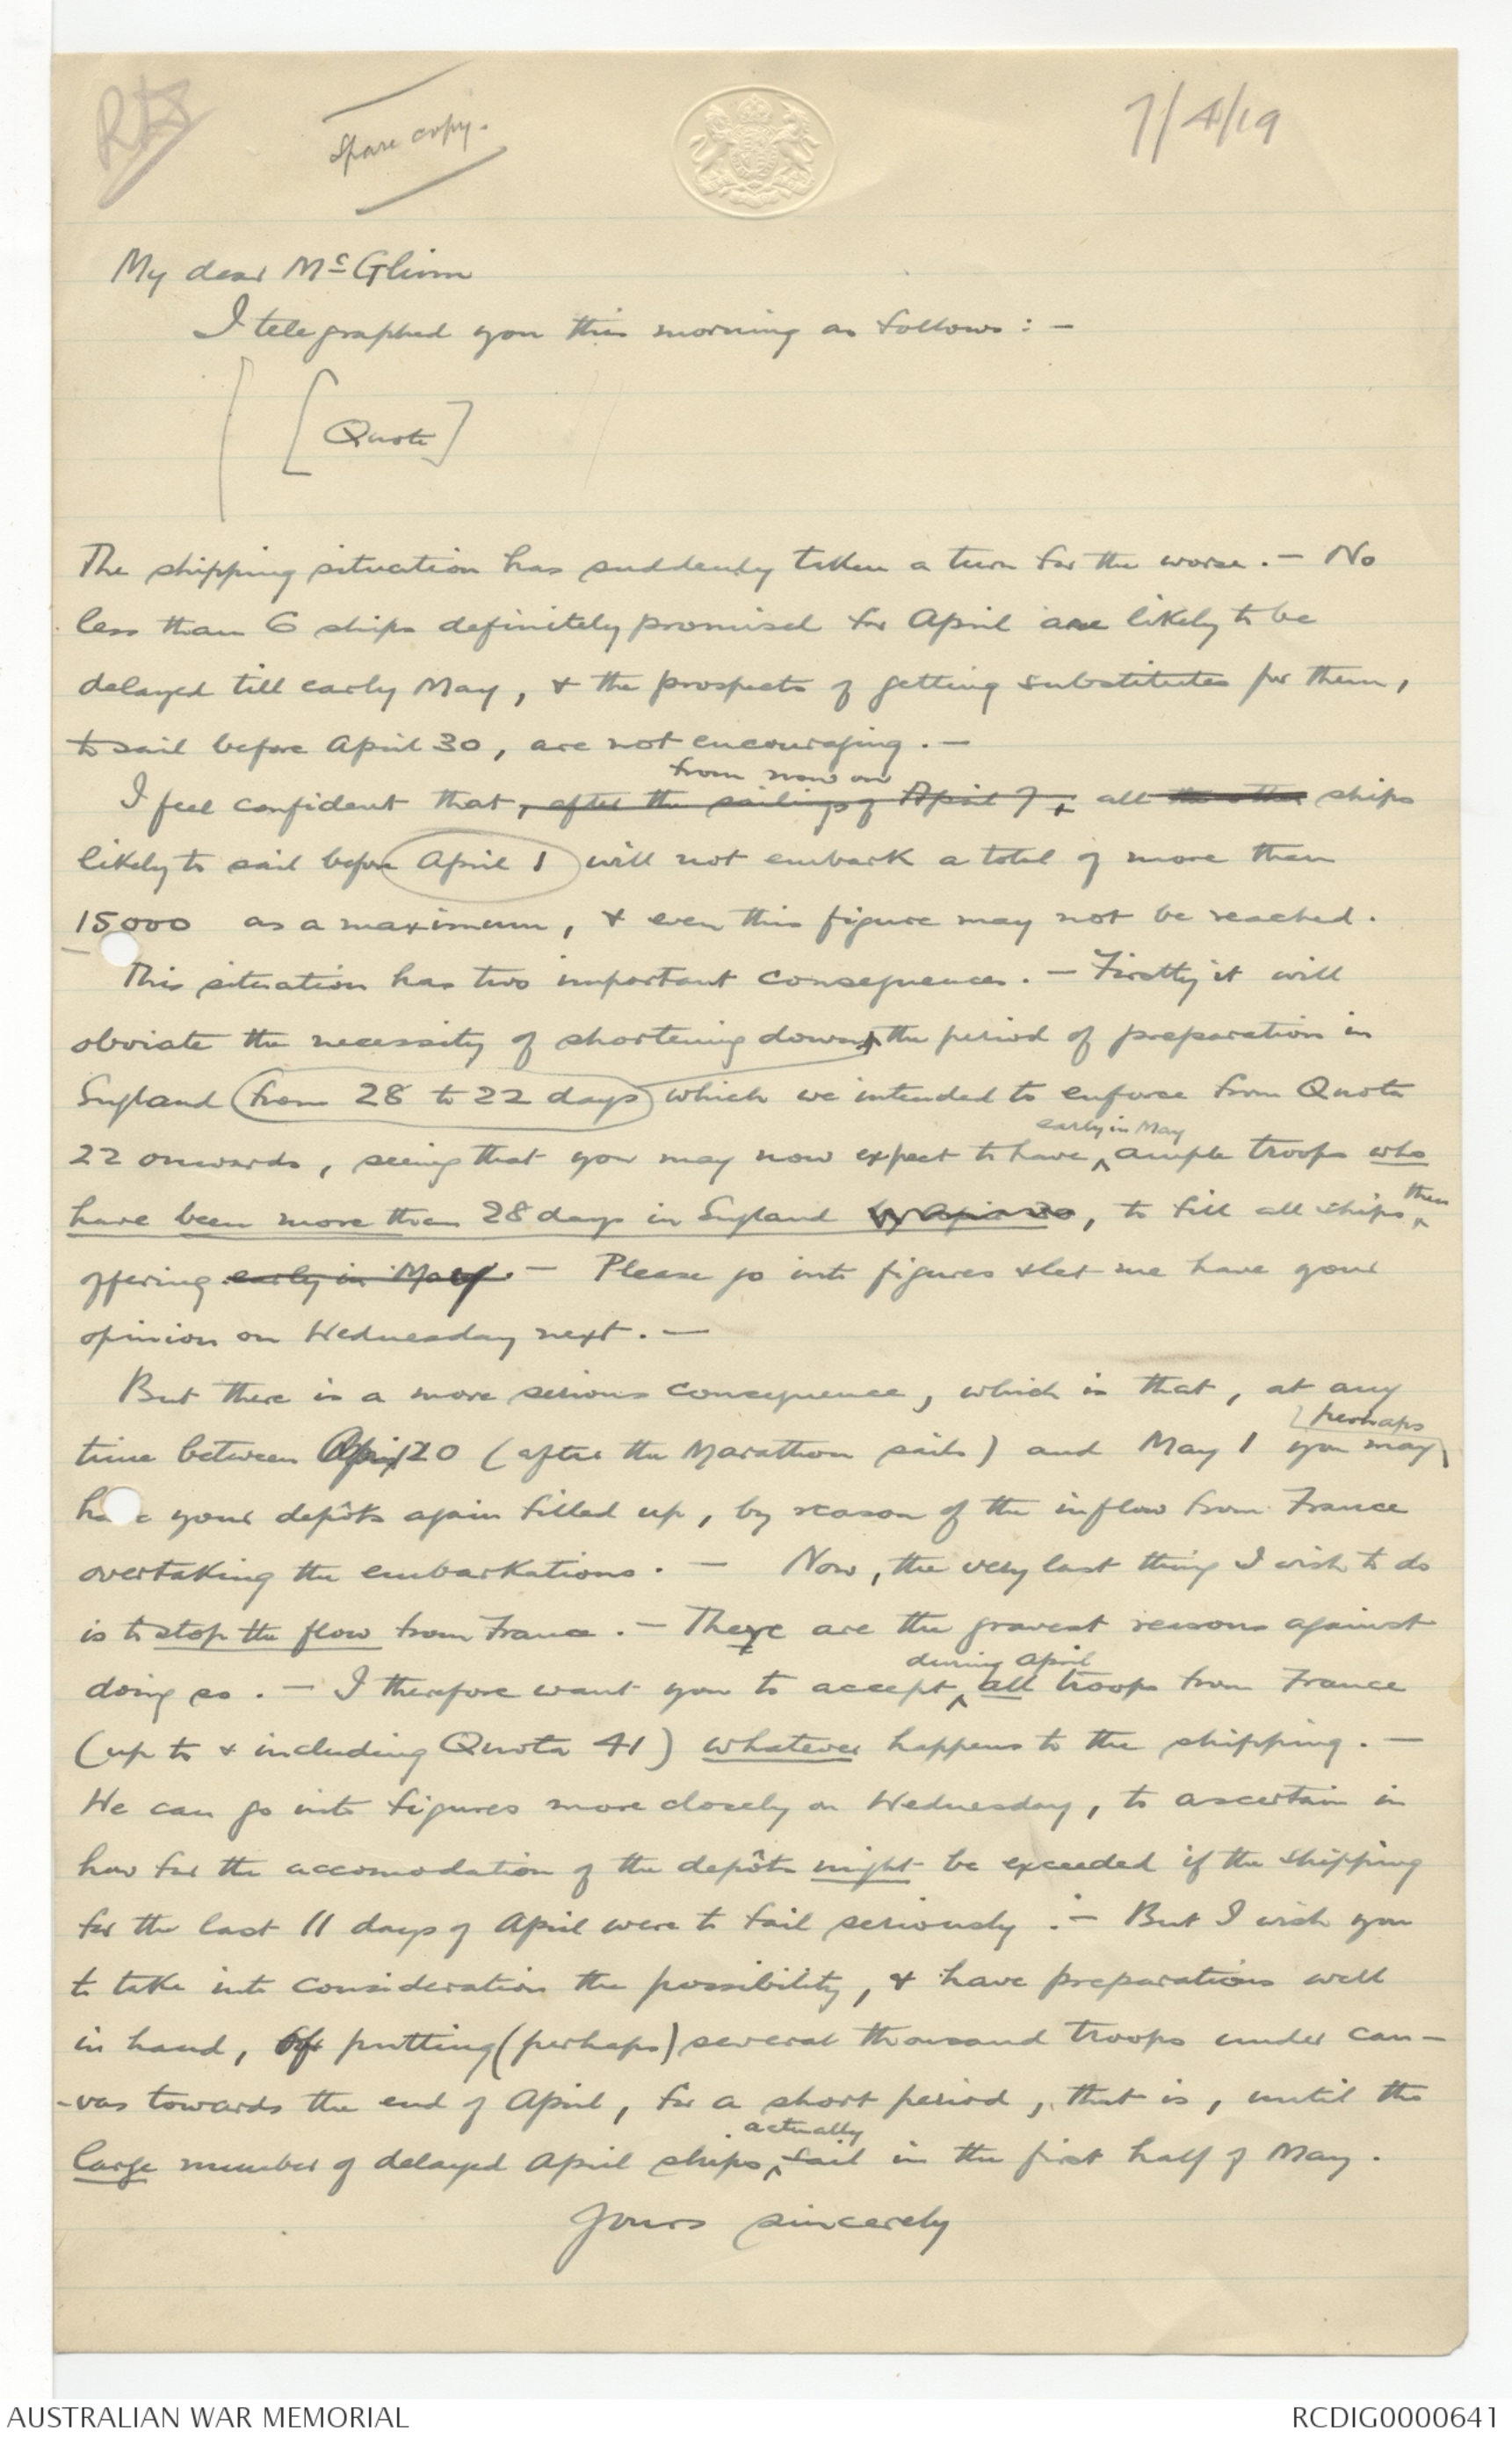 Spare copy.
7/4/19
My dear McGlinn
I telegraphed you this morning as follows : -
[Quote]
The shipping situation has suddenly taken a turn for the worse. - No
less than 6 ships definitely promised for April are likely to be
delayed till early May, & the prospects of getting substitutes for them,
to sail before April 30, are not encouraging. -
from now on
I feel confident that, after the sailings of April 7, all the other ships
likely to sail before April 1 will not embark a total of more than
15000 as a maximum, & even this figure may not be reached.
This situation has two important consequences. - Firstly it will
obviate the necessity of shortening down the period of preparation in
England from 28 to 22 days which we intended to enforce from Quota
early in May
22 onwards, seeing that you may now expect to have ample troops who
have been more than 28 days in England, to fill all ships then
offering early in May. - Please go into figures & let me have your
opinion on Wednesday next. -
But there is a more serious consequence, which is that, at any
perhaps
time between April 20 (after the Marathon sails) and May 1 you may
have your depôts again filled up, by reason of the inflow from France
overtaking the embarkations. - Now, the very last thing I wish to do
is to stop the flow from France. - There are the gravest reasons against
during April
doing so. - I therefore want you to accept all troops from France
(up to & including Quota 41) whatever happens to the shipping. -
We can go into figures more closely on Wednesday, to ascertain in
how far the accomodation of the depôts might be exceeded if the shipping
for the last 11 days of April were to fail seriously. - But I wish you
to take into consideration the possibility, & have preparations well
in hand, of putting (perhaps) several thousand troops under can-
-vas towards the end of April, for a short period, that is, until the
actually
large number of delayed April ships sail in the first half of May.
Yours sincerely
AUSTRALIAN WAR MEMORIAL
RCDIG0000641